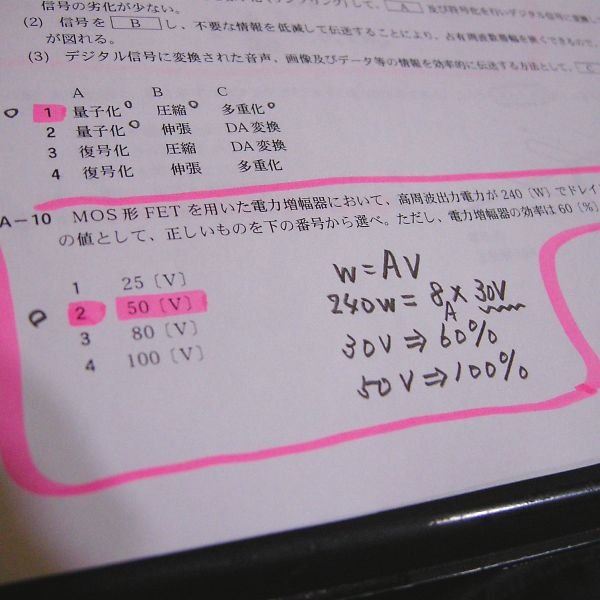 信号の劣化が少ない。
(2) 信号を B し、不要な情報を低減して伝送することにより、占有周波数帯幅を狭くできるので、
が図れる。
(3) デジタル信号に変換された音声、画像及びデータ等の情報を効率的に伝送する方法として、 C
A B C
1 量子化 圧縮 多重化
2 量子化 伸張 DA変換
3 復号化 圧縮 DA変換
4 復号化 伸張 多重化
A-10 MOS形FETを用いた電力増幅器において、高周波出力電力が240〔W〕でドレイ
の値として、正しいものを下の番号から選べ。ただし、電力増幅器の効率は60〔%〕
1 25〔V〕
2 50〔V〕
3 80〔V〕
4 100〔V〕
W=AV
240W=8×30V
A
30V⇒60%
50V⇒100%